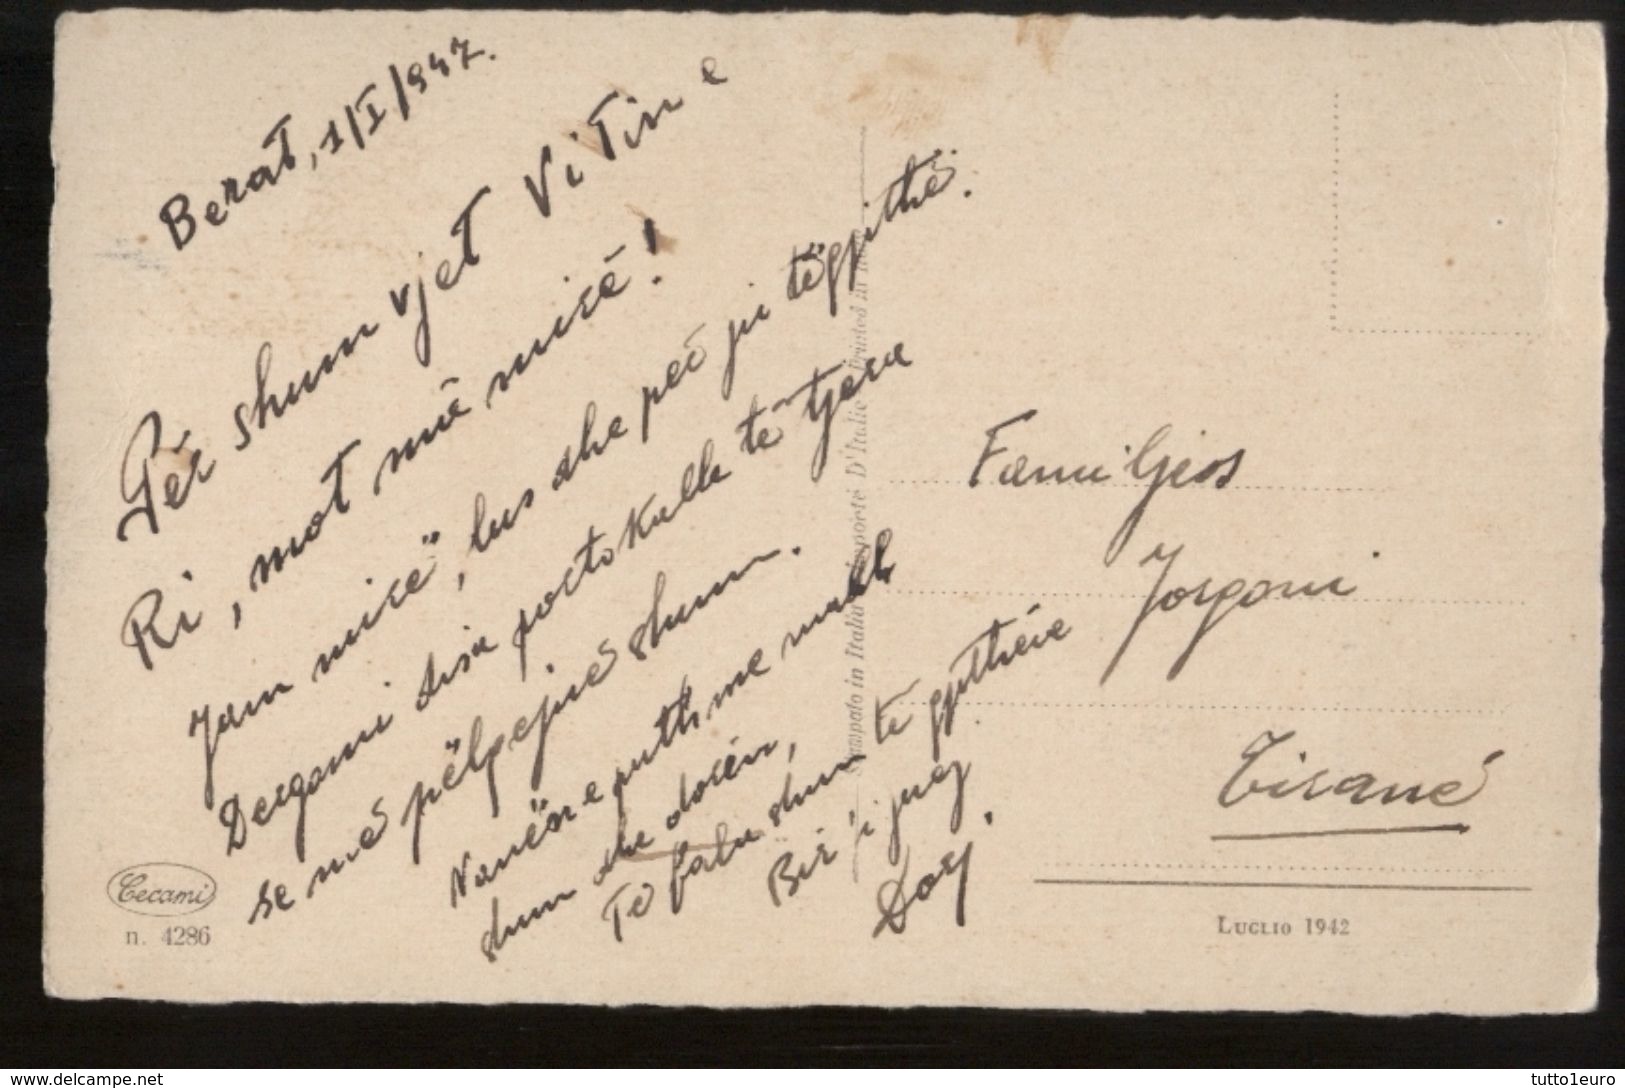 Berat, 1/I/947.
Për shum vjet Vitin e
Ri, mot më mirë!
Jam mirë, lus dhe për ju tëgjithë.
Dergoni disa portokalle të tjera
se më pëlqejnë shum.
Nanën e puth me mall
shum dhe dorën,
Te fala shum te gjithëve
Bir i juaj
Familjes
Jorgoni
Tiranë
Cecami
n. 4286
Stampato in Italia Importé D'Italie Printed in Italy
Luglio 1942
tutto1euro